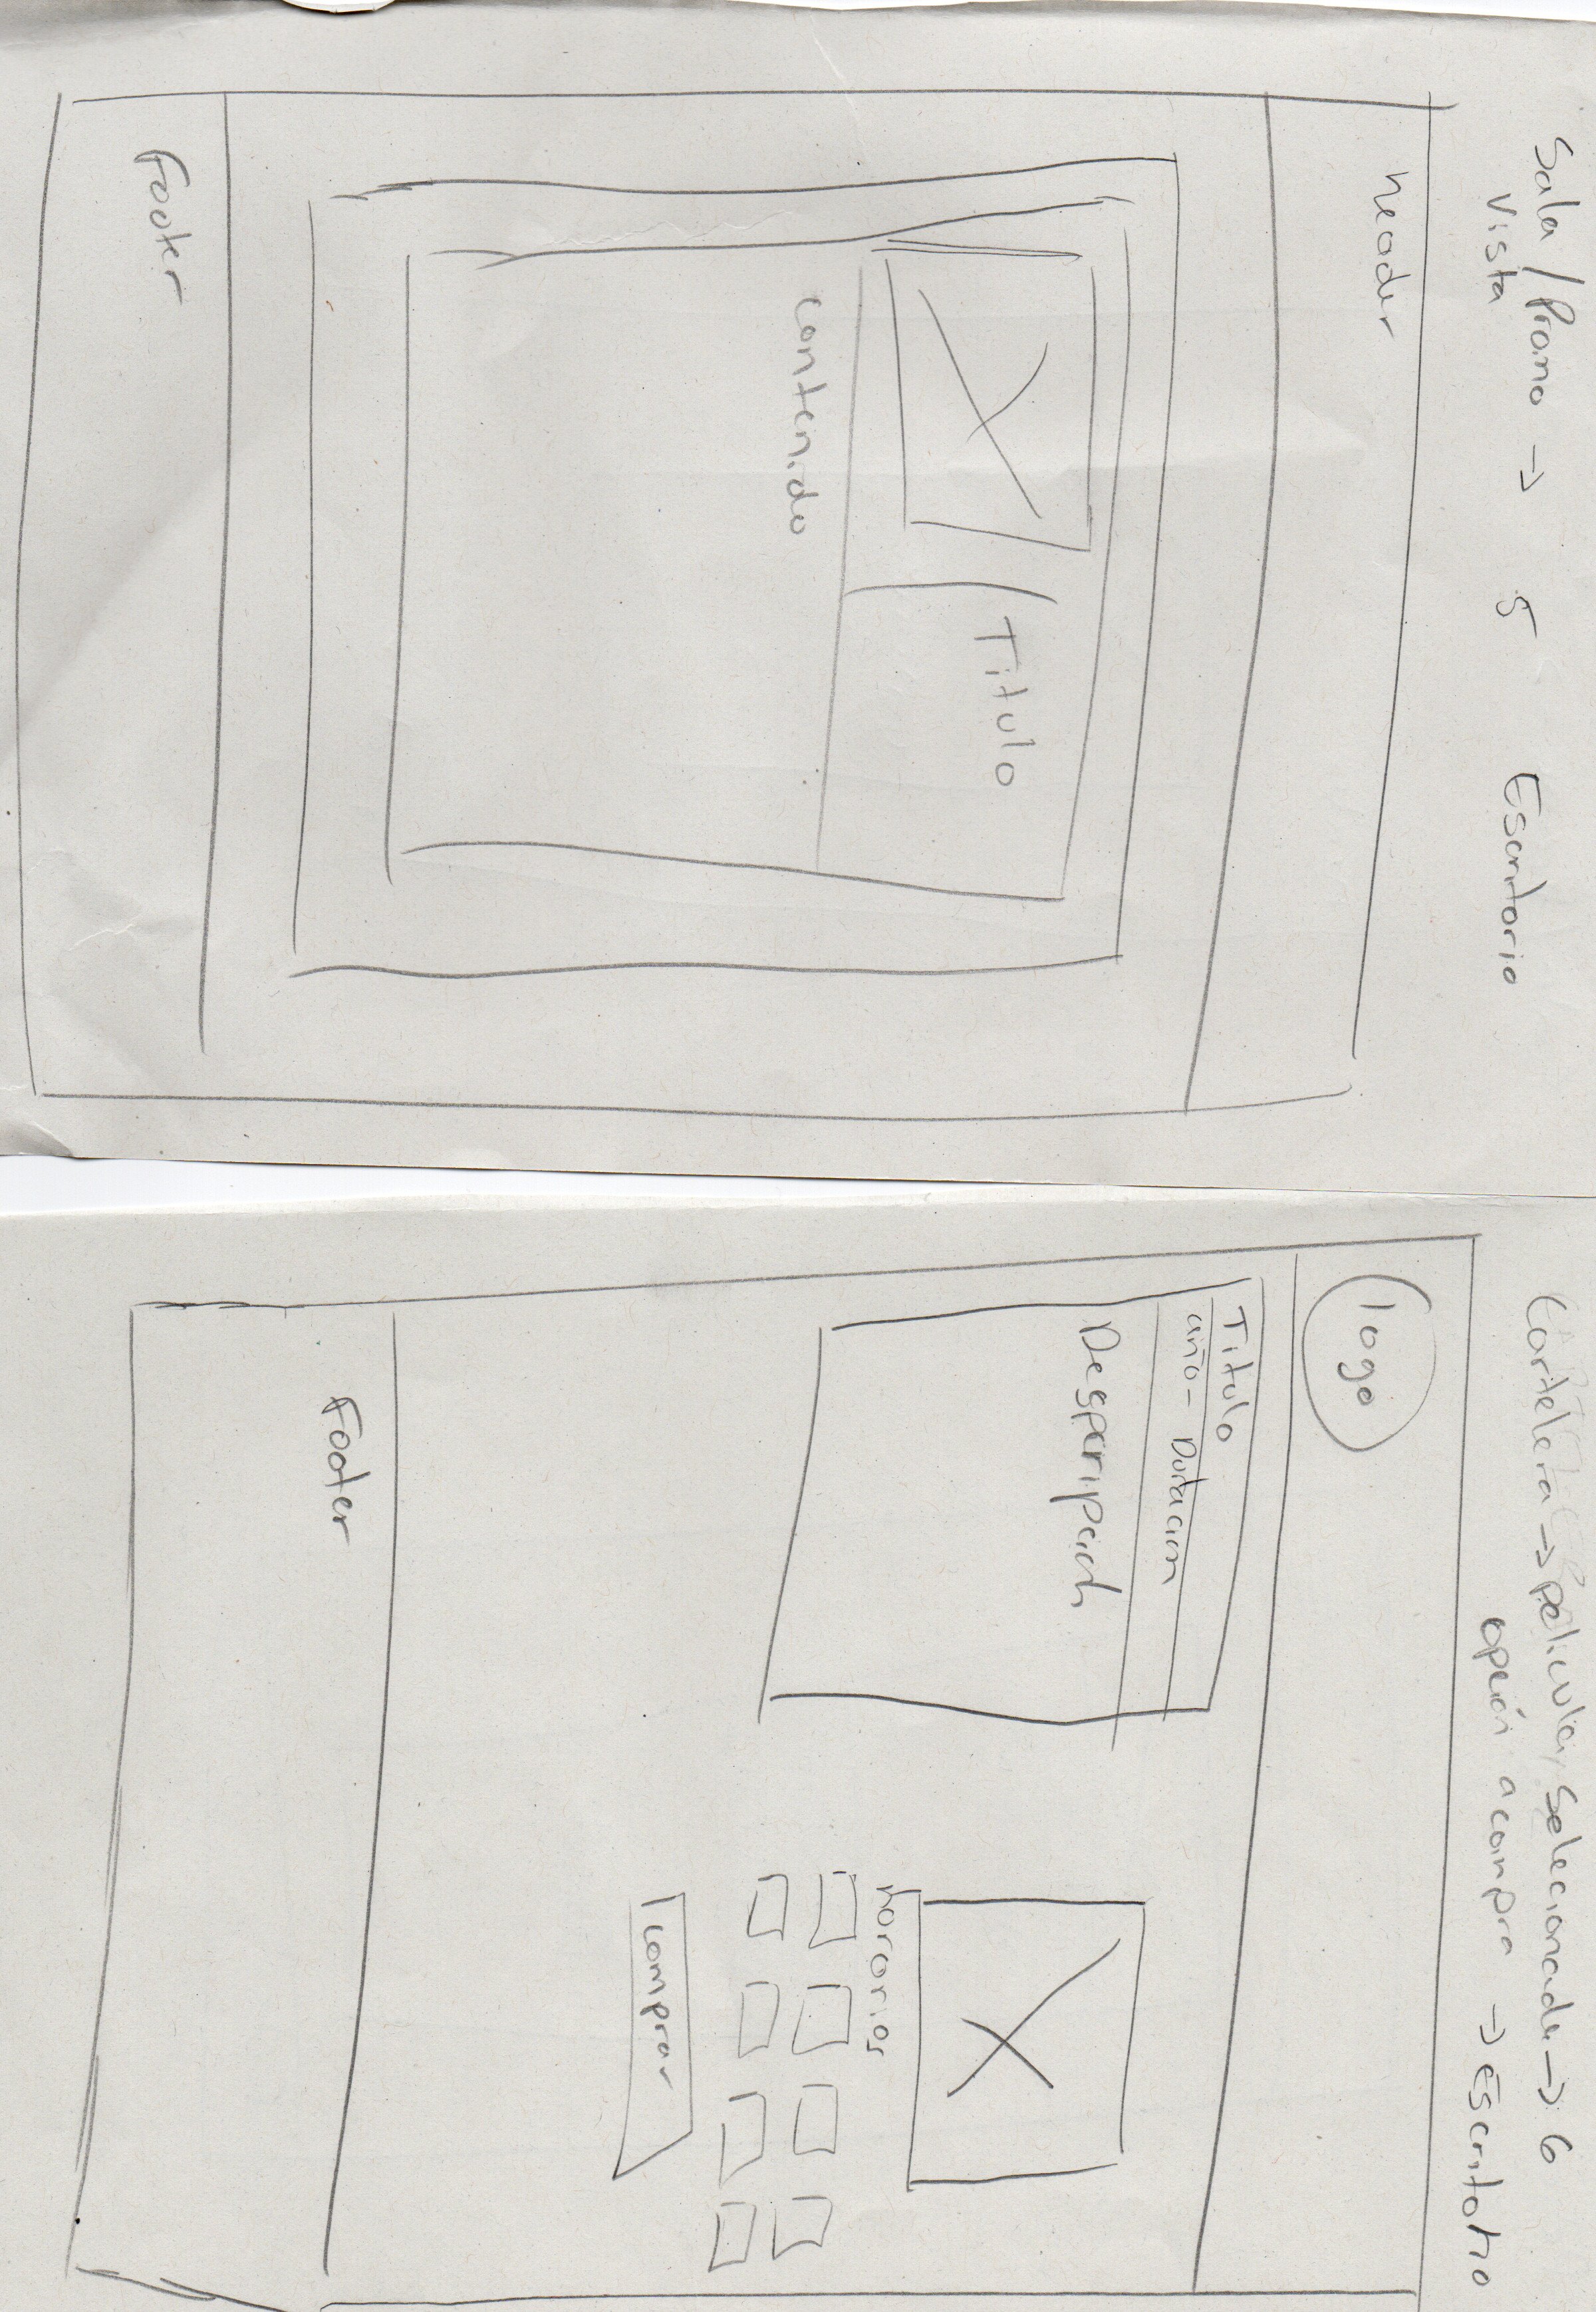 Sala / Promo → 5 Escritorio
Vista
header
Titulo
contenido
Footer
Cartelera → pelicula Selecionada → 6
opción a compra → Escritorio
logo
Titulo
año - Duracion
Horarios
comprar
Footer